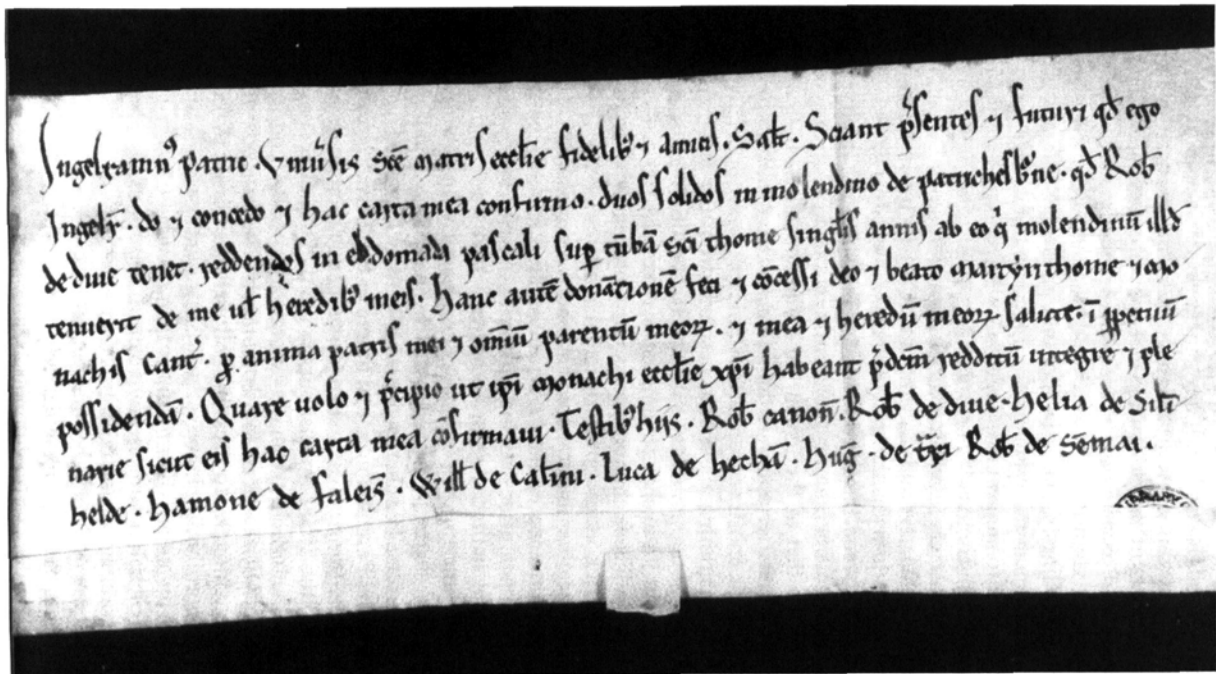 Ingelrannꝰ patric · Vniu͛sis sc̄e matris eccl̄ie fidelibꝫ ⁊ amicis · Salt̄ · Sciant p͛sentes ⁊ futuri qd̄ ego
Ingelr̄ · do ⁊ concedo ⁊ hac carta mea confirmo · duos solidos in molendino de patrichesb̄ne · qd̄ Rob̄
de diue tenet · reddendos in ebdomada pascali sup̄ tūbā sc̄i thome singl̄is annis ab eo q͛ molendinū illd̄
tenuerit de me ul̄ heredibꝫ meis · Hanc autē donationē feci ⁊ cōcessi deo ⁊ beato martyri thome ⁊ mo
nachis Cant͛ · ꝓ anima patris mei ⁊ om̄iū parentū meoꝝ · ⁊ mea ⁊ heredū meoꝝ salute · ī ꝑpetuū
possidendā · Quare uolo ⁊ p͛cipio ut ip̄i monachi eccl̄ie xp̄i habeant p͛dc̄m redditū integre ⁊ ple
narie sicut eis hac carta mea cōfirmaui · Testibꝫ hiis · Rob̄ canoñ · Rob̄ de diue · helia de Sili
helde · hamone de faleis̄ · Will̄ de · Luca de hechā · huḡ · de Rob̄ de